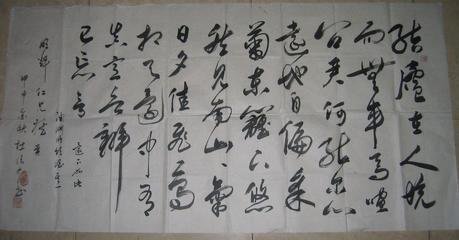 結廬在人境
而無車馬喧
問君何能尔心
遠地自偏采
菊東籬下悠
然見南山〻氣
日夕佳飛鳥
相與還中有
真意欲辯
已忘言
陶淵明
仁兄
甲申